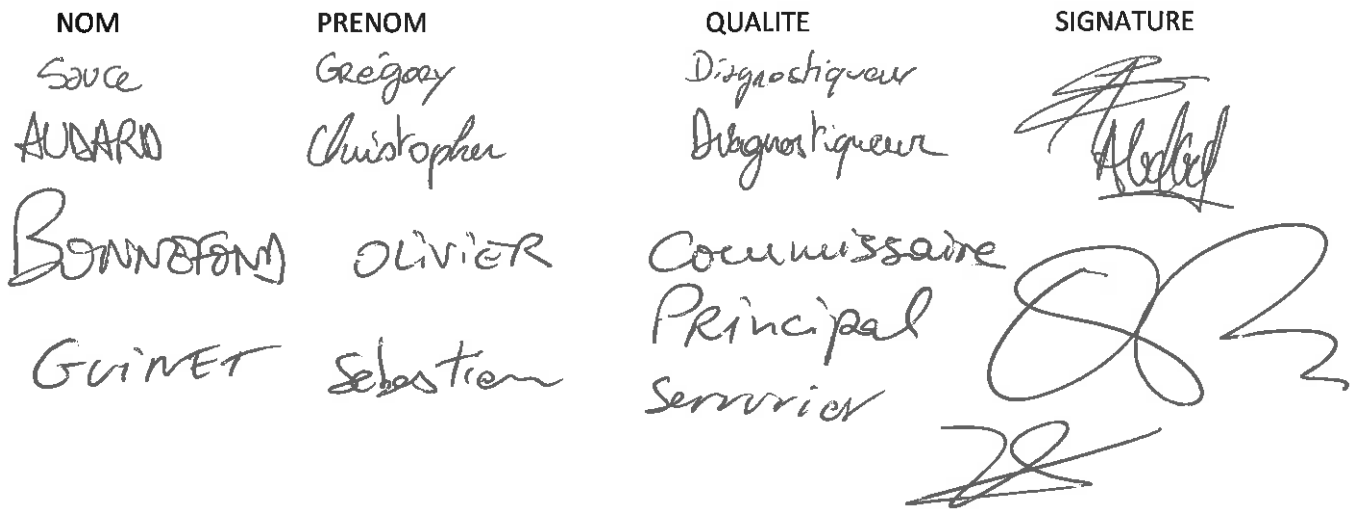 NOM PRENOM QUALITE SIGNATURE
Sauce Grégory Diagnostiqueur
AUDARD Christopher Diagnostiqueur
BONNEFOND OLIVIER Commissaire
Principal
GUINET Sébastien Serrurier